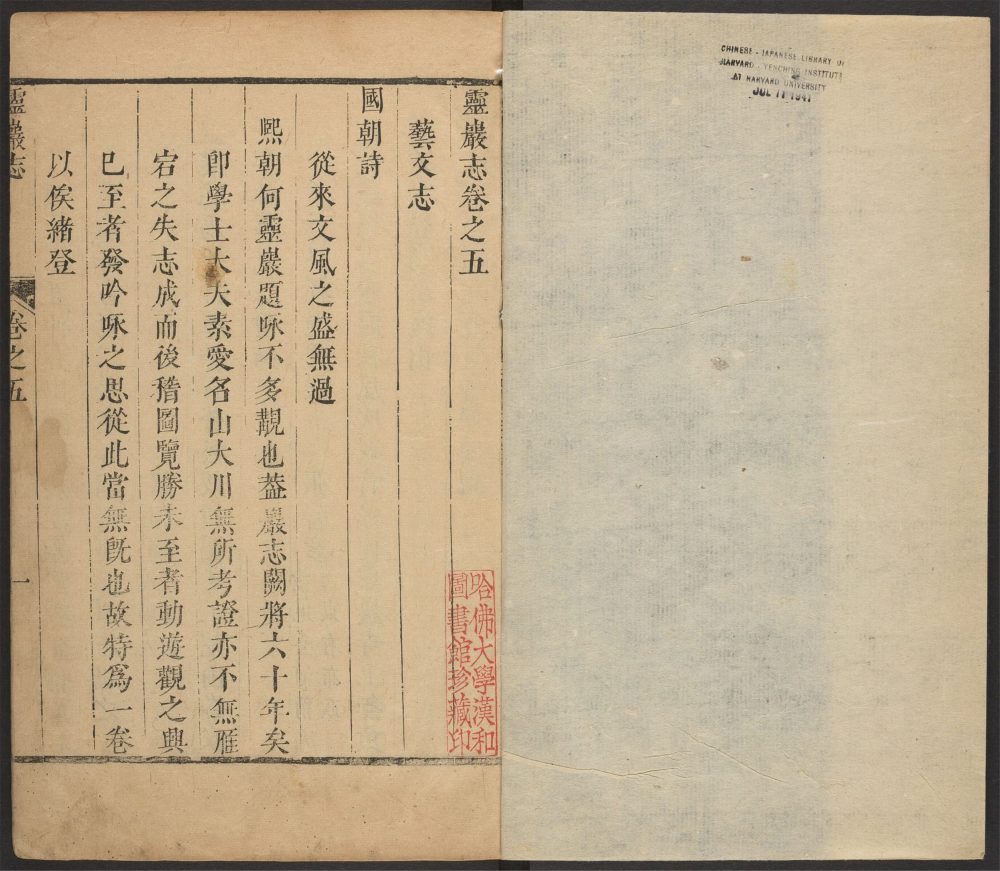 CHINESE - JAPANESE LIBRARY OF
HARVARD - YENCHING INSTITUTE
AT HARVARD UNIVERSITY
JUL 11 1941
靈巖志卷之五
藝文志
國朝詩
從來文風之盛無過
熈朝何靈巖題咏不多覯也葢巖志闕將六十年矣
卽學士大夫素愛名山大川無所考證亦不無雁
宕之失志成而後稽圖覽勝未至者動遊觀之興
已至者發吟咏之思從此當無旣也故特爲一卷
以俟緒登
靈巖志
卷之五
一
哈佛大學漢和
圖書館珍藏印